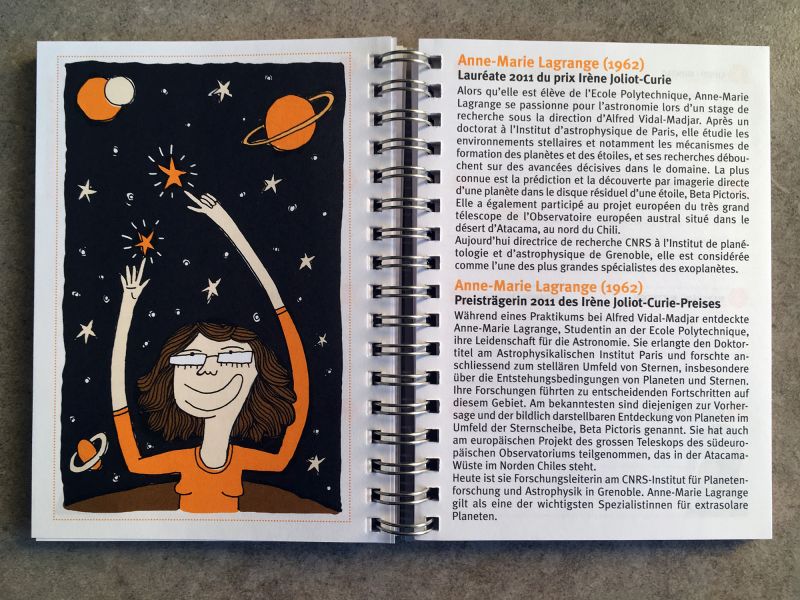 Anne-Marie Lagrange (1962)
Lauréate 2011 du prix Irène Joliot-Curie
Alors qu'elle est élève de l'Ecole Polytechnique, Anne-Marie
Lagrange se passionne pour l'astronomie lors d'un stage de
recherche sous la direction d'Alfred Vidal-Madjar. Après un
doctorat à l'Institut d'astrophysique de Paris, elle étudie les
environnements stellaires et notamment les mécanismes de
formation des planètes et des étoiles, et ses recherches débou-
chent sur des avancées décisives dans le domaine. La plus
connue est la prédiction et la découverte par imagerie directe
d'une planète dans le disque résiduel d'une étoile, Beta Pictoris.
Elle a également participé au projet européen du très grand
télescope de l'Observatoire européen austral situé dans le
désert d'Atacama, au nord du Chili.
Aujourd'hui directrice de recherche CNRS à l'Institut de plané-
tologie et d'astrophysique de Grenoble, elle est considérée
comme l'une des plus grandes spécialistes des exoplanètes.
Anne-Marie Lagrange (1962)
Preisträgerin 2011 des Irène Joliot-Curie-Preises
Während eines Praktikums bei Alfred Vidal-Madjar entdeckte
Anne-Marie Lagrange, Studentin an der Ecole Polytechnique,
ihre Leidenschaft für die Astronomie. Sie erlangte den Doktor-
titel am Astrophysikalischen Institut Paris und forschte an-
schliessend zum stellären Umfeld von Sternen, insbesondere
über die Entstehungsbedingungen von Planeten und Sternen.
Ihre Forschungen führten zu entscheidenden Fortschritten auf
diesem Gebiet. Am bekanntesten sind diejenigen zur Vorher-
sage und der bildlich darstellbaren Entdeckung von Planeten im
Umfeld der Sternscheibe, Beta Pictoris genannt. Sie hat auch
am europäischen Projekt des grossen Teleskops des südeuro-
päischen Observatoriums teilgenommen, das in der Atacama-
Wüste im Norden Chiles steht.
Heute ist sie Forschungsleiterin am CNRS-Institut für Planeten-
forschung und Astrophysik in Grenoble. Anne-Marie Lagrange
gilt als eine der wichtigsten Spezialistinnen für extrasolare
Planeten.